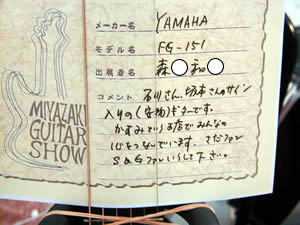 メーカー名 YAMAHA
モデル名 FG-151
出展者名 森○和○
コメント 石川さん、坂本さんのサイン
入りの(宝物)ギターです。
かすみという店でみんなの
心をつないでいます。さだファン
S&Gファンいらして下さい。
MIYAZAKI
GUITAR
SHOW